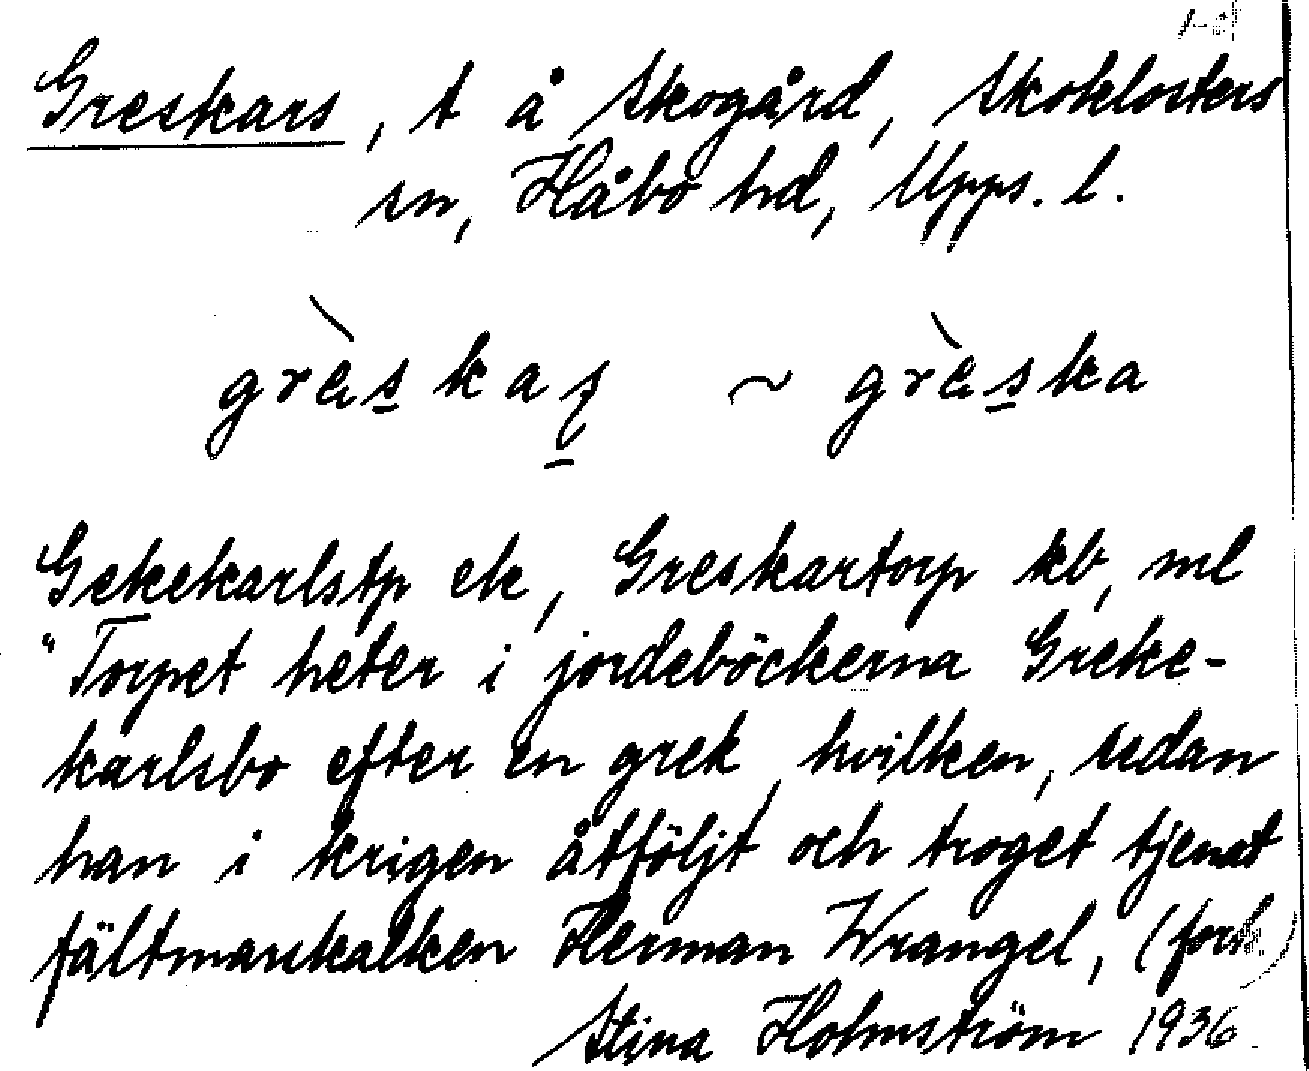 Greskars, t å Skogård, Skoklosters
sn, Håbo hd, Upps. l.
grèskaʂ ~ grèska
Gekekarlstp ek, Greskartorp kb, ml
"Torpet heter i jordeböckerna Greke-
karlsbo efter en grek, hvilken, sedan
han i krigen åtföljt och troget tjenat
fältmarskalken Herman Wrangel, (forts.)
Stina Holmström 1936.